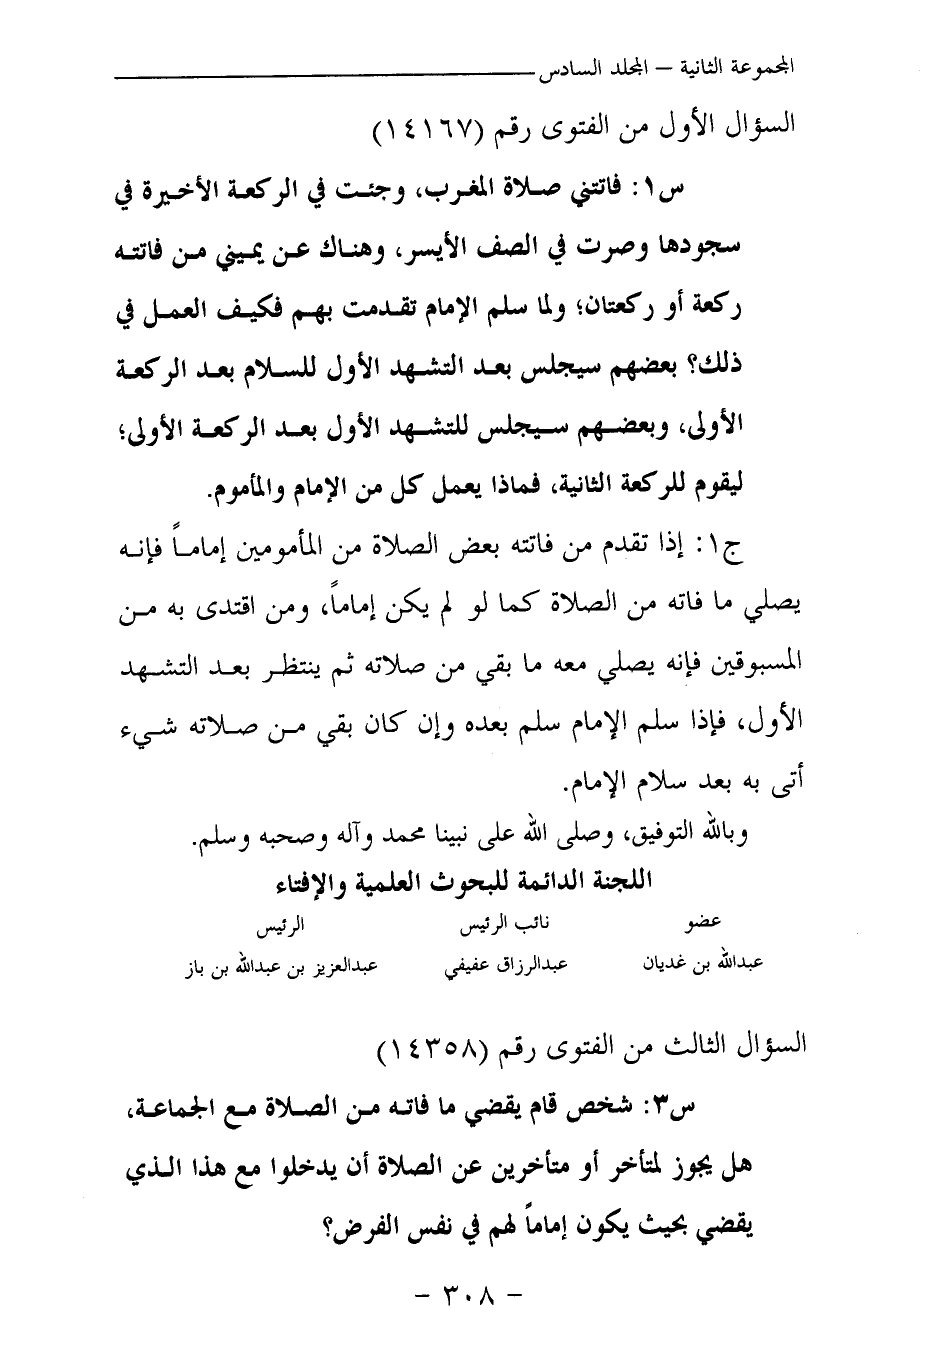 المجموعة الثانية – المجلد السادس
السؤال الأول من الفتوى رقم (١٤١٦٧)
س١: فاتتني صلاة المغرب، وجئت في الركعة الأخيرة في
سجودها وصرت في الصف الأيسر، وهناك عن يميني من فاتته
ركعة أو ركعتان؛ ولما سلم الإمام تقدمت بهم فكيف العمل في
ذلك؟ بعضهم سيجلس بعد التشهد الأول للسلام بعد الركعة
الأولى، وبعضهم سيجلس للتشهد الأول بعد الركعة الأولى؛
ليقوم للركعة الثانية، فماذا يعمل كل من الإمام والمأموم.
ج١: إذا تقدم من فاتته بعض الصلاة من المأمومين إماماً فإنه
يصلي ما فاته من الصلاة كما لو لم يكن إماماً، ومن اقتدى به من
المسبوقين فإنه يصلي معه ما بقي من صلاته ثم ينتظر بعد التشهد
الأول، فإذا سلم الإمام سلم بعده وإن كان بقي من صلاته شيء
أتى به بعد سلام الإمام.
وبالله التوفيق، وصلى الله على نبينا محمد وآله وصحبه وسلم.
اللجنة الدائمة للبحوث العلمية والإفتاء
عضو نائب الرئيس الرئيس
عبدالله بن غديان عبدالرزاق عفيفي عبدالعزيز بن عبدالله بن باز
السؤال الثالث من الفتوى رقم (١٤٣٥٨)
س٣: شخص قام يقضي ما فاته من الصلاة مع الجماعة،
هل يجوز لمتأخر أو متأخرين عن الصلاة أن يدخلوا مع هذا الذي
يقضي بحيث يكون إماماً لهم في نفس الفرض؟
– ٣٠٨ –